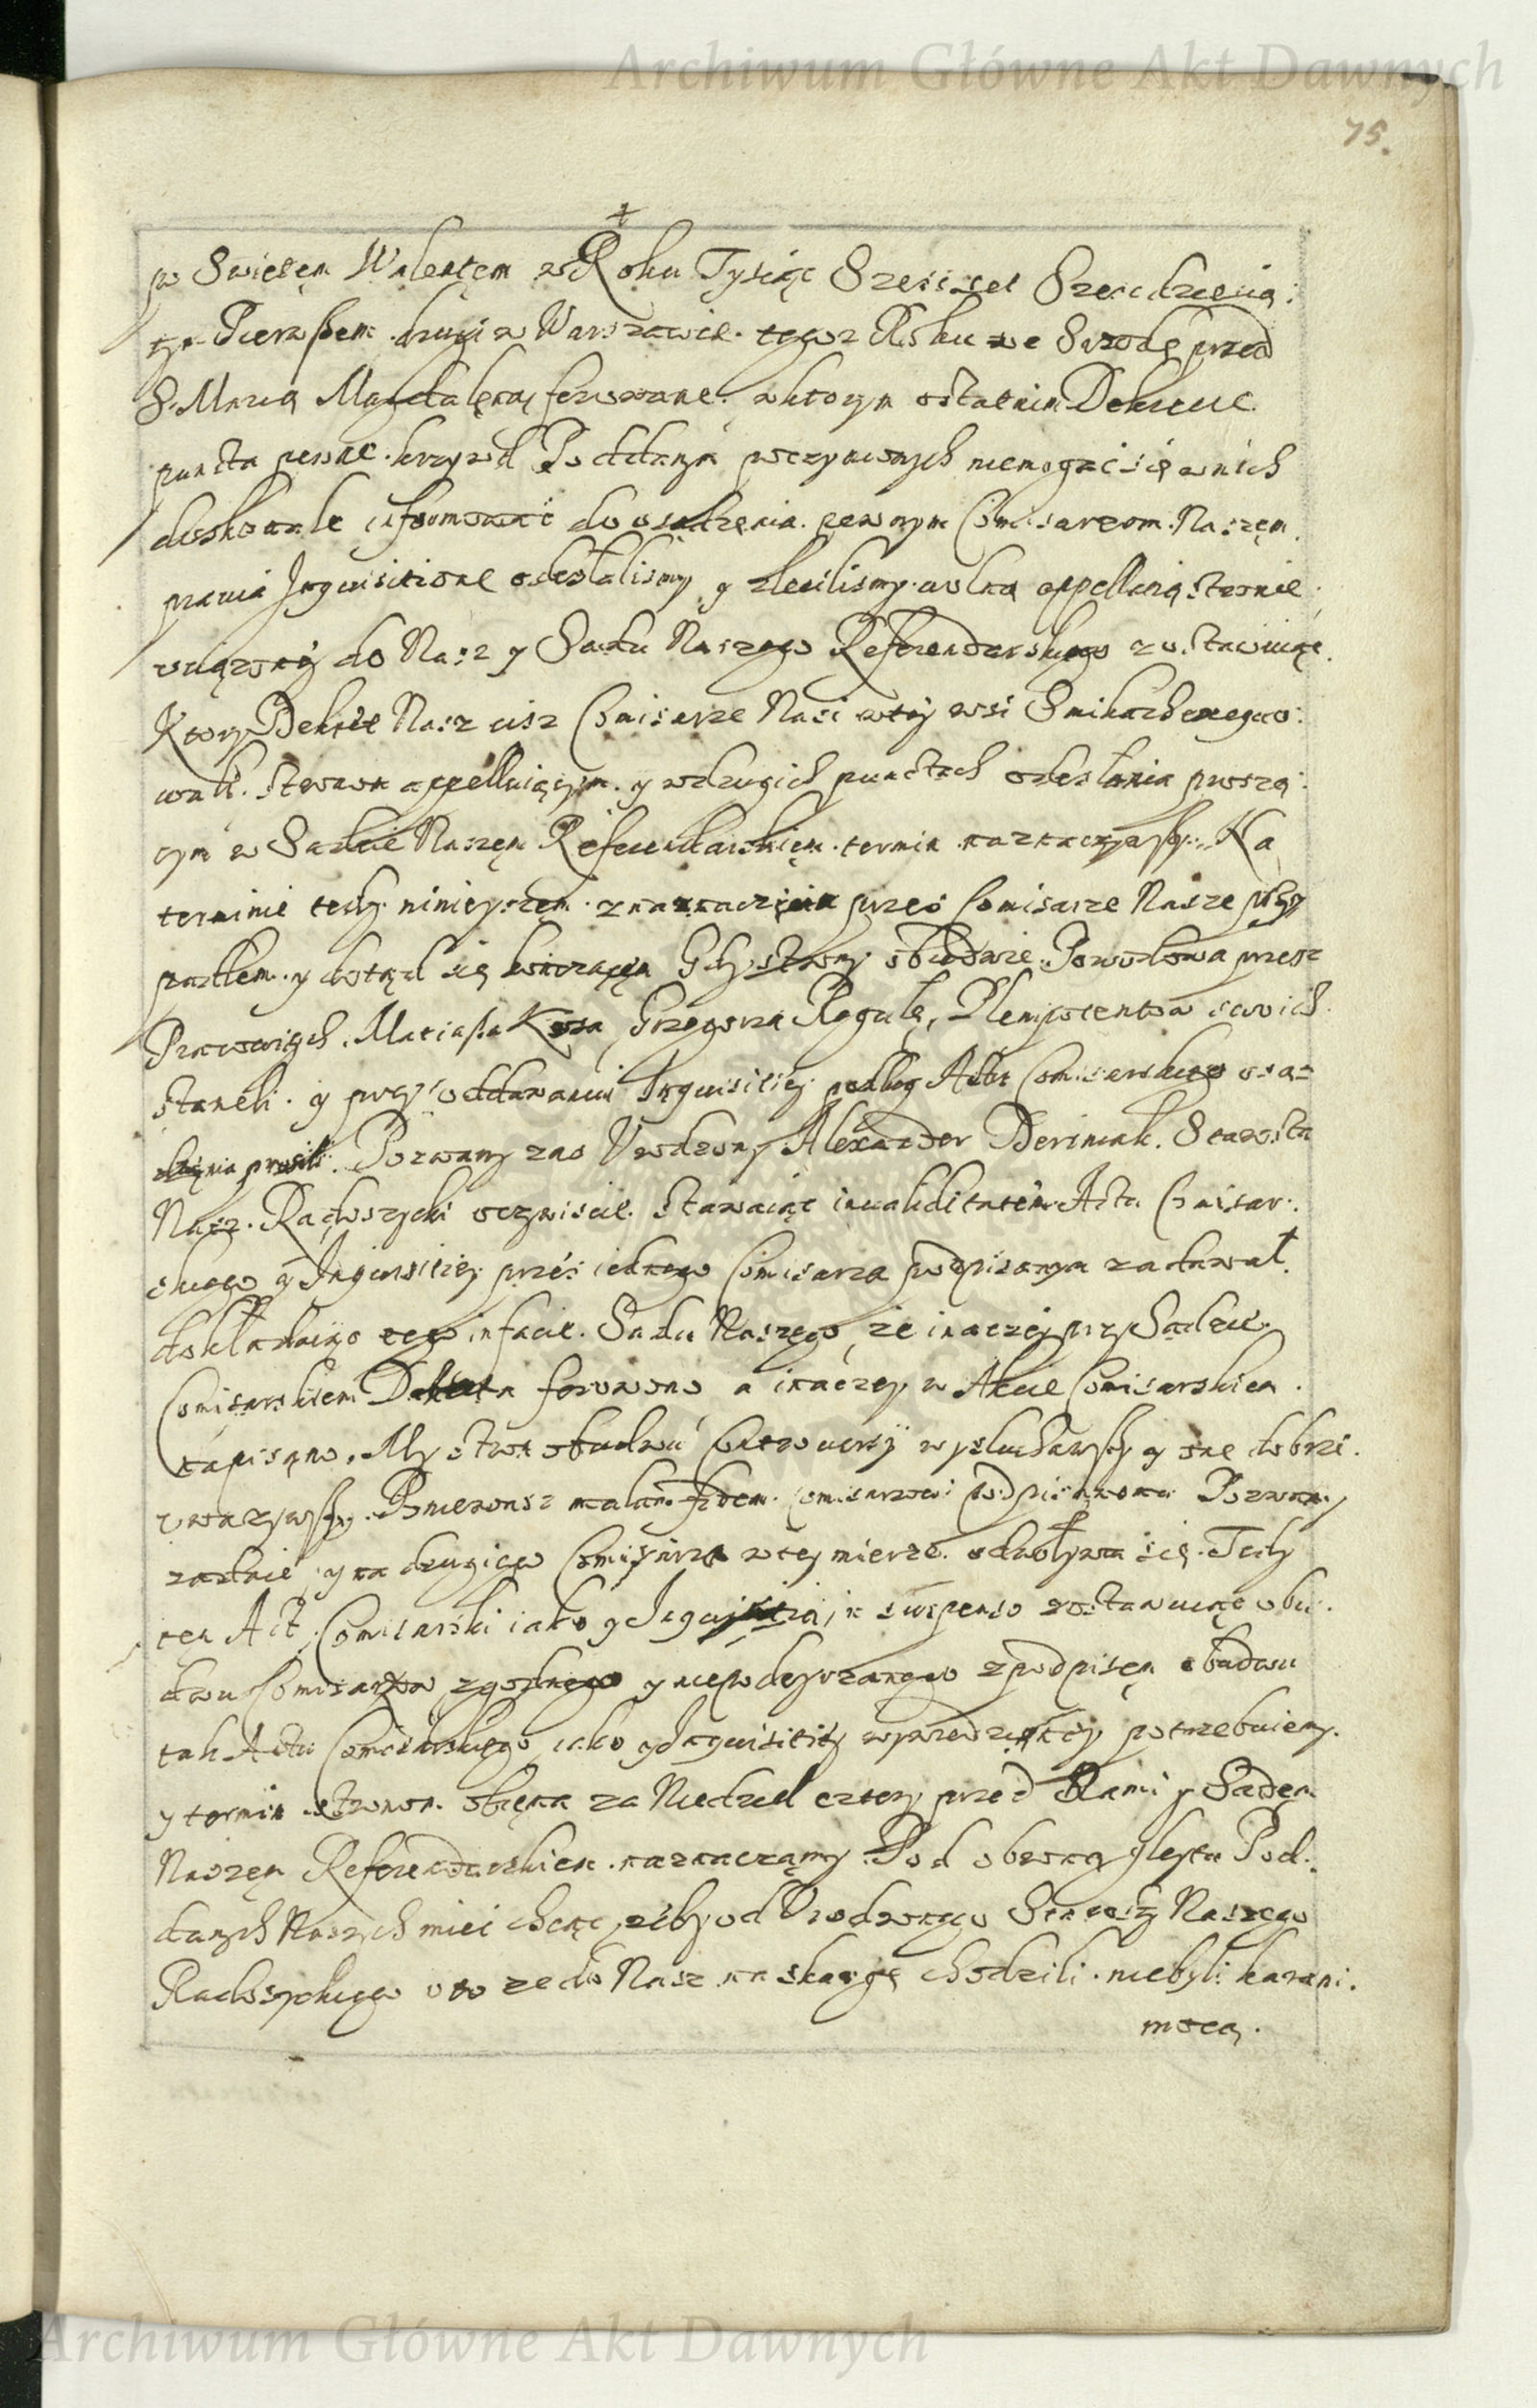 Archiwum Główne Akt Dawnych
75.
po Swiętem Walentem w Roku Tysiąc Szescset Szescdziesią:
tym Pierwszem. drugi w Warszawie. tegoz Roku we Srzodę przed
S. Marią Magdaleną ferowane. w ktorym ostatnim Dekrecie.
puncta pewne. krzywd Poddanym poczynionych niemogąc się w nich
doskonale informować do osądzenia. pewnym Comisarzom. Naszem
prawie Inquisitione odesłalismy y zleciliśmy. wolną appellatią stronie
do Nasz y Sadu Naszego Referendarskiego zostawuiąc.
Ktory Dekret Nasz cisz Comisarze Nasi w tey wsi
wali. stronom appelluiącym. y w drugich punctach odesłania proszą:
cym w Sadzie Naszem Referendarskiem. termin naznaczyli. Na
terminie tedy. ninieyszem. znaznaczenia przes Comisarze Nasze przy
padłem. y dotąd się Gdy strony obiedwie. Powodowa przesz
Pracowitych. Maciasza Kosa Grzegorza Regułę, Plenipotentow swoich
staneli. y przy oddawaniu Inquisitiey podług Actu Comisarskiego osą=
dzenia prosili. Pozwany zas Urodzony Alexander Starosta
Nasz. oczywiscie. stawaiąc invaliditatem Actu Comisar:
skiego y Inquisitiey przes iednego Comisarza podpisanym zadawał.
dokładaiąc tego in facie. Sadu Naszego, że inaczey przy Sądzie.
Comisarskiem Dekreta ferowano a inaczey w Akcie Comisarskiem.
napisano. My stron obudwu Controwersÿ wysłuchawszy y one dobrze.
uwazywszy. Poniewasz malam fidem. Comisarzowi podpisanemu Pozwany
zadaie, y na drugiego Comisarza w tey mierze. odwoływa się. Tedy
ten Act Comisarski iako y Inquisitią in suspenso zostawuiąc obu:
dwu Comisarzow zgodnego y niepodeyrzanego z podpisem obudwu
tak Actu Comisarskiego, iako y Inquisitiey wyprowadzoney potrzebuiemy.
y termin stronom. obiema za Niedziel cztery przed Nami y Sądem
Naszem Referendarskiem. naznaczamy. Pod obroną Gleytu Pod:
danych Naszych miec chcąc, żeby od Urodzonego Starosty Naszego
o to ze do Nasz na skargę chodzili. niebyli karani.
mocą.
Archiwum Główne Akt Dawnych